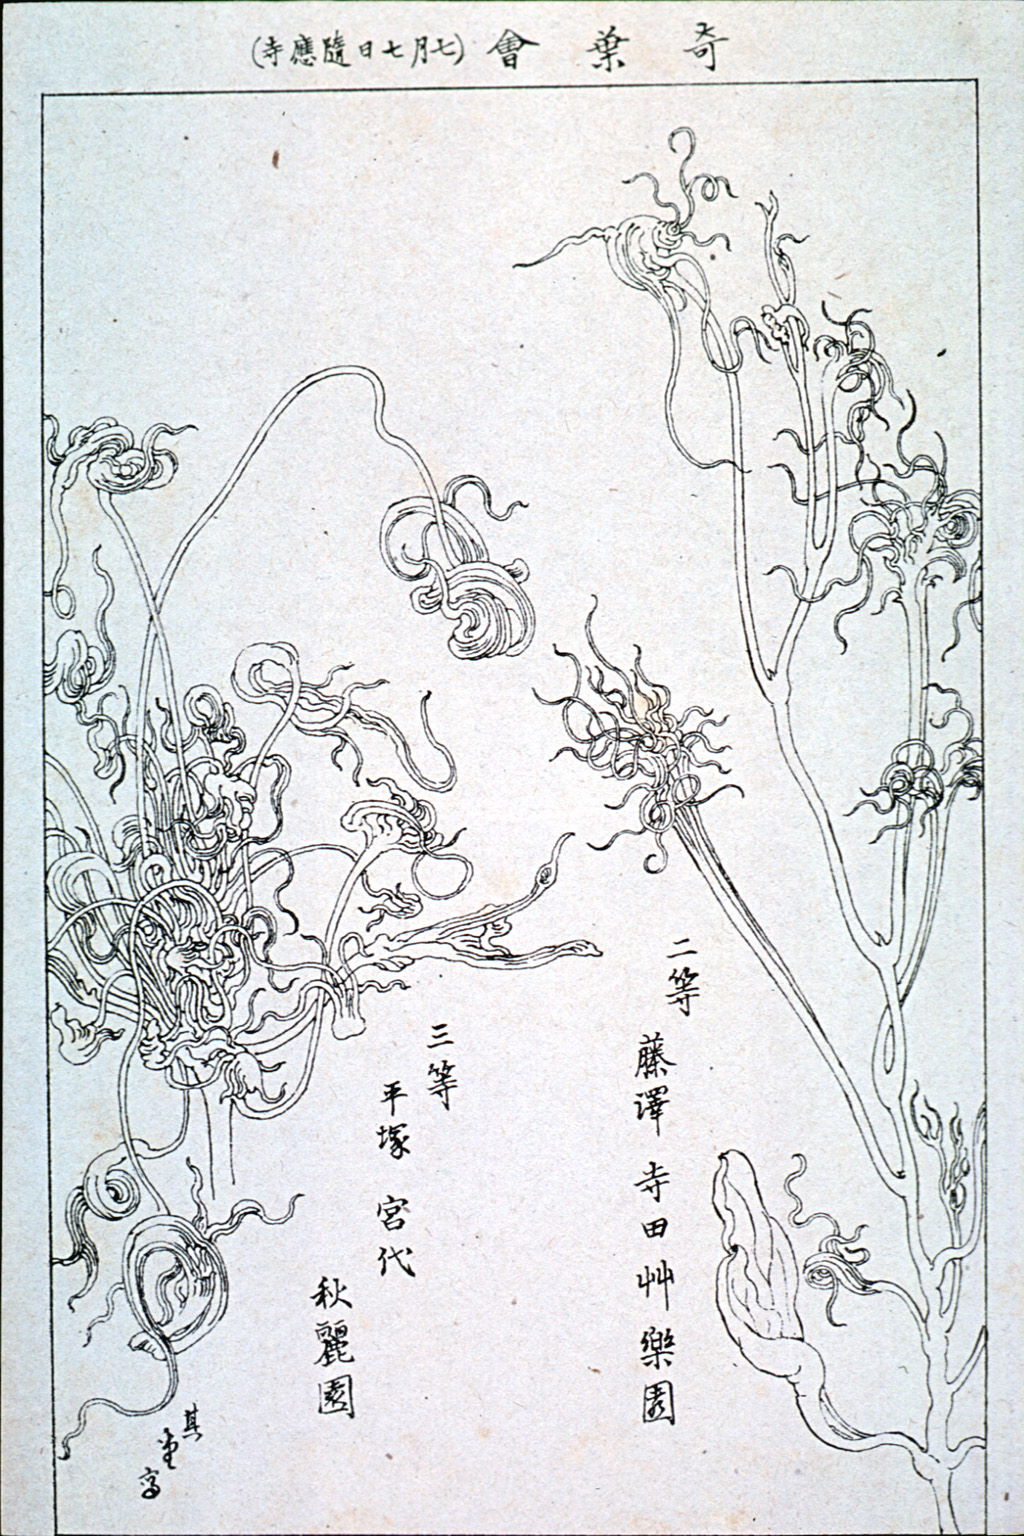 奇葉會(七月七日隨應寺)
二等
藤澤 寺田艸樂園
三等
平塚 宮代
秋麗園
其堂写